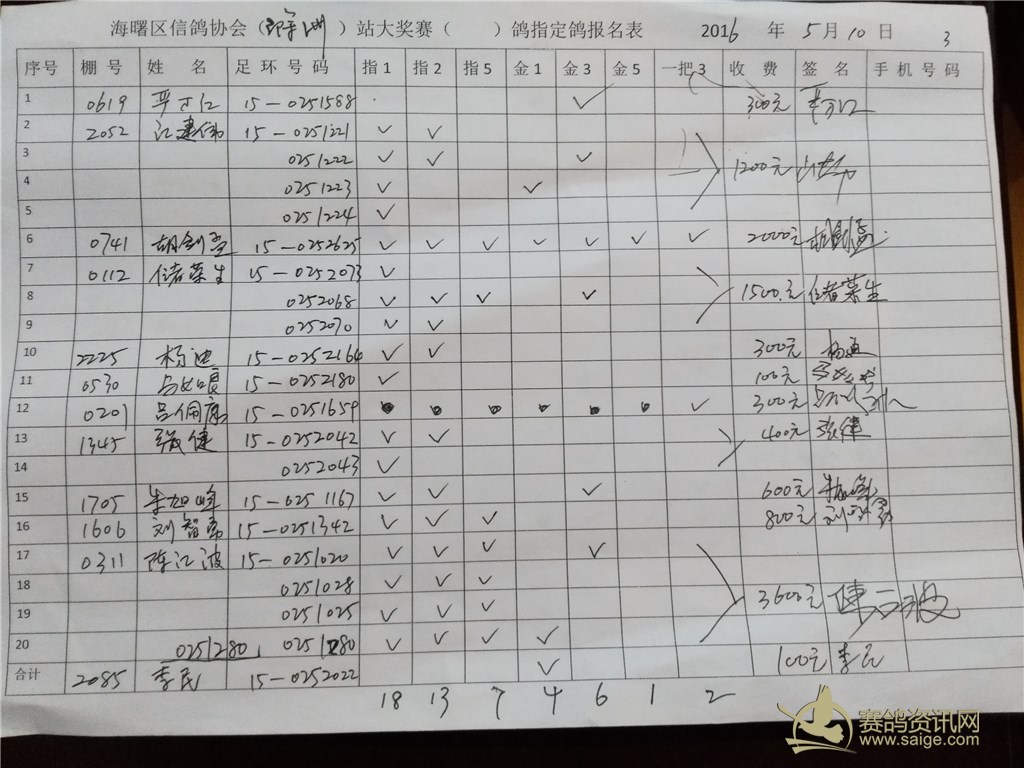 海曙区信鸽协会（ ）站大奖赛（ ）鸽指定鸽报名表 2016 年 5月10日 3
序号 棚号 姓 名 足环号码 指1 指2 指5 金1 金3 金5 一把3 收 费 签 名 手机号码
1 0619 15-0251588 ✓ 300元
2 2052 江建伟 15-0251221 ✓ ✓
3 0251222 ✓ ✓ ✓ 1200元
4 0251223 ✓ ✓
5 0251224 ✓
6 0741 胡剑 15-0252625 ✓ ✓ ✓ ✓ ✓ ✓ ✓ 2000元
7 0112 储荣生 15-0252073 ✓
8 0252068 ✓ ✓ ✓ ✓ 1500.元 储荣生
9 0252070 ✓ ✓
10 2225 杨迪 15-0252164 ✓ ✓ 300元 杨迪
11 0530 15-0252180 ✓ 100元
12 0201 吕佩康 15-0251659 ● ● ● ● ● ● ✓ 300元
13 1345 张健 15-0252042 ✓ ✓ 400元 张健
14 0252043 ✓
15 1705 朱旭峰 15-0251167 ✓ ✓ ✓ 600元
16 1606 刘智 15-0251342 ✓ ✓ ✓ 800元
17 0311 陈江波 15-0251020 ✓ ✓ ✓ ✓
18 0251028 ✓ ✓ ✓ 3600元 陈江波
19 0251025 ✓ ✓ ✓
20 0251280 0251280 ✓ ✓ ✓ ✓
合计 2085 李民 15-0252022 ✓ 100元 李民
18 13 7 4 6 1 2
赛鸽资讯网
www.saige.com